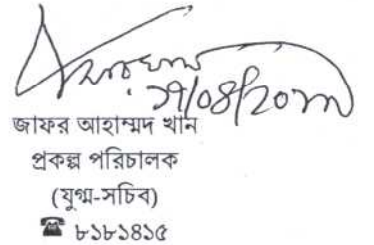 জাফর আহাম্মদ খান
প্রকল্প পরিচালক
(যুগ্ম-সচিব)
☎ ৮১৮১৪১৫